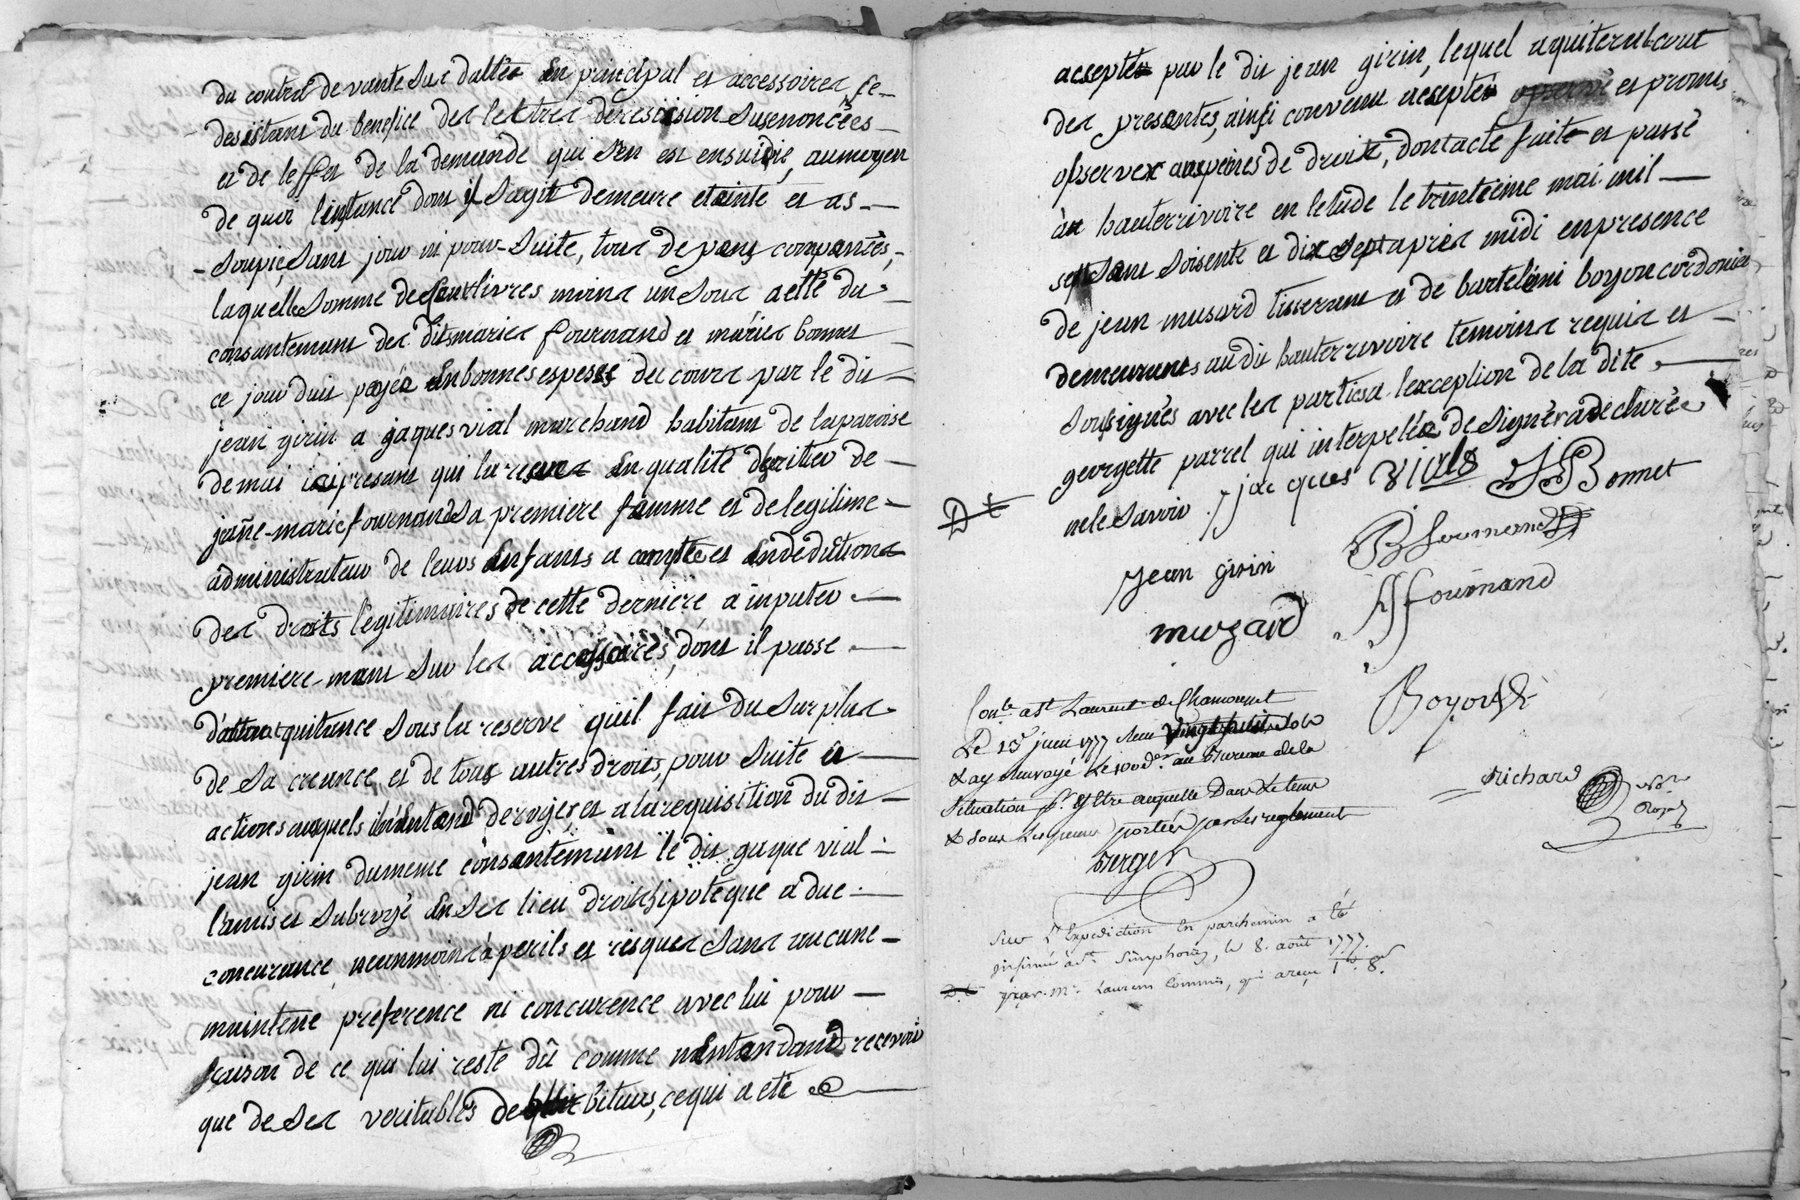 du contra de vante sus dattés en principal et accessoires, se
desistant du benefice des lettres de rescision susenoncéés
et de leffet de la demande qui s'en est ensuivie, aumoyen
de quoi linstance dont il sagit demeure etainte et as-
soupie, sans jour ni pour-suite, tous depans compancés,
laquelle somme de livres moins un sous a etté du
consantement des dits mariés fournand et mariés bonnet
ce jour duit payéé en bonnes espeses du cours par le dit
jean girin a jaques vial marchand habitant de la paroise
de mai ici presant qui la resue en qualité dhéritier de
jañe-marie fournand sa premiere famme et de legitime
administrateur de leurs enfants a compte et en deduttions
des droits legitimaires de cette derniere a inputer
premiere-mant sur les accessoires, dont il passe
d'autant quitance sous la reserve qu'il fait du surplus
de sa creance, et de tous autres droits, pour suite et
actions auxquels il n'entand deroger, et a la requisition du dit
jean girin dumeme consantemant le dit jaque vial
l'a mis et subrogé en ses lieu droits hipoteque a due
concurance, neanmoins à perils et risques sans aucune
maintene preference ni concurence avec lui pour
raison de ce qui lui reste dû comme n'entandand recevoir
que de ses veritables debiteurs, ce qui a eté
acsepter par le dit jean girin, lequel aquitera le cout
des presantes, ainsi convenu acsepter et promis
opserver aux peines de droits, dont acte faite et passé
àu hauterrivoire en letude le trintieme mai mil
sept sant soisente et dix sept apriès midi en presence
de jean musard tisserant et de bartelemi boyon cordonier,
demeurants au dit hauterrivoire temoins requis et
soussignés avec les parties a l'exception de la dite
georgette parrel qui interpeléé de signer a declaréé
ne le savoir. jac ques Vials JB Bonnet
Jean girin
B fournand
muzard fournand
Boyon
Con.le a S.t Laurent de Chamousset
Le 15 juin 1777 Reçu vingt huit sols
& ay renvoyé le 100.e d.er au Bureau de la
situation p.r y Etre acquitté Dans le tems
& sous Les peines portéés par Les reglement
berger
richard No.re
Royal
Sur L'Expédiction En parchemin a été
insinué a S.t Simphorien, le 8. août 1777.
par M.r Laurens Commis, qui a reçu 1.tt 8.s